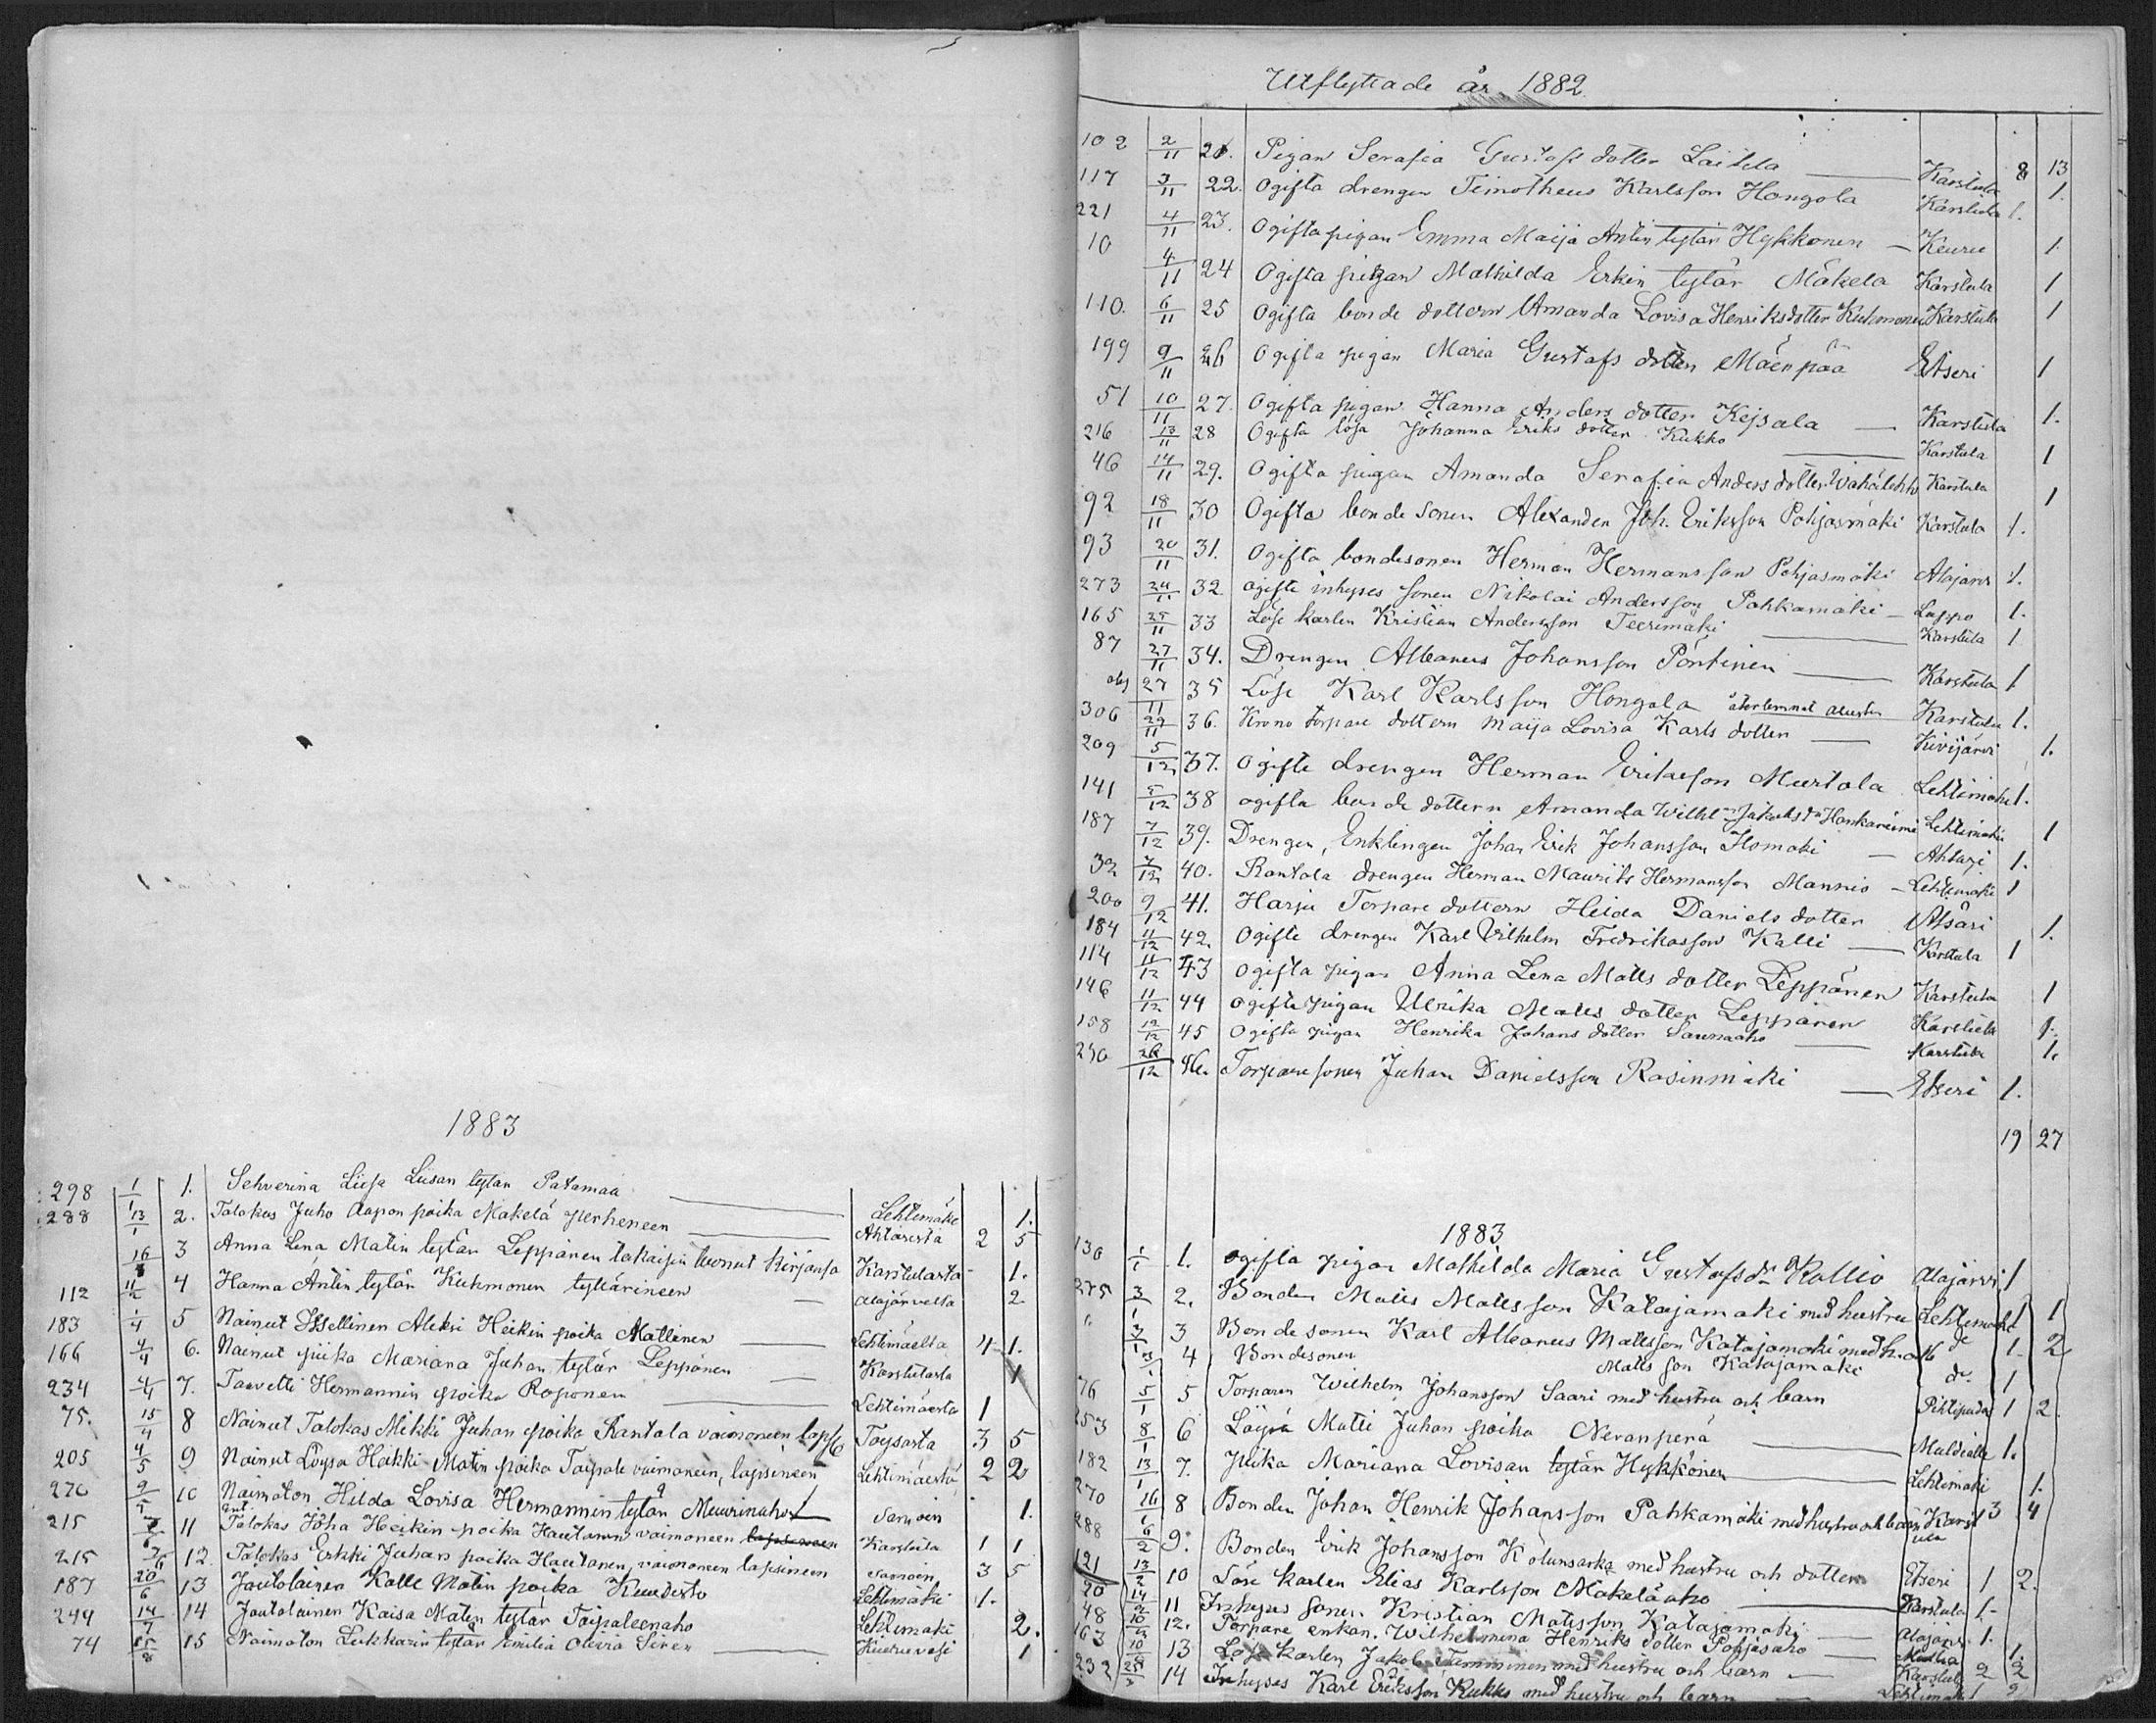 1883
298 1/1 1. Sehverina Liisa Liisan tytär Patamaa — Lehtimäke 1.
288 13/1 2. Talokas Juho Aapon poika Mäkelä perheneen — Ahtäristä 2 5
16 3 Anna Lena Matin tytär Leppänen takaisin tuonut kirjansa Karstulasta 1.
112 11/2 4 Hanna Antin tytär Kuhmonen tyttärineen — Alajärveltä 2
183 1/4 5 Nainut Itsellinen Aleksi Heikin poika Mattinen — Lehtimäeltä 4 1.
166 4/4 6. Nainut piika Mariana Juhan tytär Leppänen — Karstulasta 1
234 4/4 7. Taavetti Hermannin poika Roponen — Lehtimäestä 1
75. 15/4 8 Nainut Talokas Mikki Juhan poika Rantala vaimoneen laps/6 Töysästä 3 5
205 4/5 9 Nainut Löysä Heikki Matin poika Taipale vaimoneen, lapsineen Lehtimäestä 2 2
270 9/5 10 Naimaton Hilda Lovisa Hermannin tytär Muurinaho Samoin 1.
215 11 Talokas Joha Heikin poika Hautanen vaimoneen lapsineen Karstula 1 1
215 7/6 12. Talokas Erkki Juhan poika Hautanen, vaimoneen lapsineen samoin 3 5
187 20/6 13 Joutolainen Kalle Matin poika Kuudisto Lehtimäki 1.
249 14/7 14 Joutolainen Kaisa Matin tytär Taipaleenaho Lehtimäki 2.
74 15/8 15 Naimaton Leikkarin tytär Emilia Olivia Siren — Kuuruvesi 1
Utflyttade år 1882
102 2/11 21. Pigan Serafia Gustafs dotter Laitila — Karstula 8 13
117 3/11 22. Ogifta drengen Timotheus Karlsson Hongola Karstula 1. 1.
221 4/11 23. Ogifta pigan Emma Maija Antin tytär Hykkönen — Keuru 1
10 4/11 24 Ogifta pigan Mathilda Erkin tytär Mäkelä Karstula 1
110. 6/11 25 Ogifta bonde dottern Amanda Lovisa Henriksdotter Kuhmonen Karstula 1
199 9/11 26 Ogifta pigan Maria Gustafs dotter Mäenpää Etseri 1
51 10/11 27. Ogifta pigan Hanna Anders dotter Kejsala — Karstula 1.
216 13/11 28 Ogifta lösa Johanna Eriks dotter Kukko — Karstula 1
46 14/11 29. Ogifta pigan Amanda Serafia Anders dotter Wähälehto Karstula 1
92 18/11 30 Ogifta bonde sonen Alexander Joh. Eriksson Pohjasmäki Karstula 1.
93 20/11 31. Ogifta bondesonen Herman Hermansson Pohjasmäki Alajärvi 1.
273 24/11 32. ogifte inhyses sonen Nikolai Andersson Pahkamäki — Lappo 1.
165 25/11 33 Löse karlen Kristian Andersson Teerimäki — Karstula 1
87 27/11 34. Drengen Albanus Johansson Pöntinen — Karstula 1
obs 27/11 35 Löse Karl Karlsson Hongola återlemnat Karstula 1.
306 29/11 36. Krono torpare dottern Maija Lovisa Karls dotter — Kivijärvi 1.
209 5/12 37. Ogifte drengen Herman Eriksson Murtola Lehtimäki 1.
141 5/12 38 ogifta bonde dottern Amanda Wilhl-na Jakobs dr Hankaniemi Lehtimäki 1
187 7/12 39. Drengen, Enklingen Johan Erik Johansson Ilomäki — Ahtäri 1.
32 7/12 40. Rantala drengen Herman Maurits Hermansson Mannio — Lehtimäki 1
200 9/12 41. Harju Torpare dottern Hilda Daniels dotter Atsäri 1.
184 11/12 42. Ogifte drengen Karl Vilhelm Fredriksson Kalli — Karstula 1
114 11/12 43 Ogifta pigan Anna Lena Matts dotter Leppänen Karstula 1
146 11/12 44 Ogifta pigan Ulrika Matts dotter Leppänen Karstula 1.
158 12/12 45 Ogifta pigan Henrika Johans dotter Saunaaho — Karstula 1.
230 28/12 46. Torparesonen Juhan Danielsson Rasinmäki — Etseri 1.
19 27
1883
130 1/1 1. Ogifta pigan Mathilda Maria Gustafs dr Kallio Alajärvi 1
275 3/1 2. Bonden Matts Mattsson Katajamäki med hustru Lehtimäki 1 1
" 3/1 3 Bonde sonen Karl Albanus Mattsson Katajamäki med h. do 1 2
3/1 4 Bondesonen Mattsson Katajamäki do 1
76 5/1 5 Torparen Wilhelm Johansson Saari med hustru och barn Pihtipudas 1 2
253 8/1 6 Löysä Matti Juhan poika Nevanperä — Muldialle 1.
182 13/1 7. piika Mariana Lovisan tytär Hykkönen — Lehtimäki 1.
270 16/1 8 Bonden Johan Henrik Johansson Pahkamäki med hustru och barn Karstula 3 4
288 6/2 9. Bonden Erik Johansson Kolunsarka med hustru och dotter Etseri 1 2.
121 13/2 10 Löse karlen Elias Karlsson Mäkeläaho — Karstula 1
20 14/2 11 Inhyses sonen Kristian Mattsson Katajamäki — Alajärvi 1.
48 12. Torpare enkan Wilhelmina Henriks dotter Pohjasaho — Multia 1.
163 10 13 Löse karlen Jakob Tamminen med hustru och barn — Karstula 2 2
232 14 Inhyses Karl Eriksson Kukko med hustru och barn — Lehtimäki 1 2